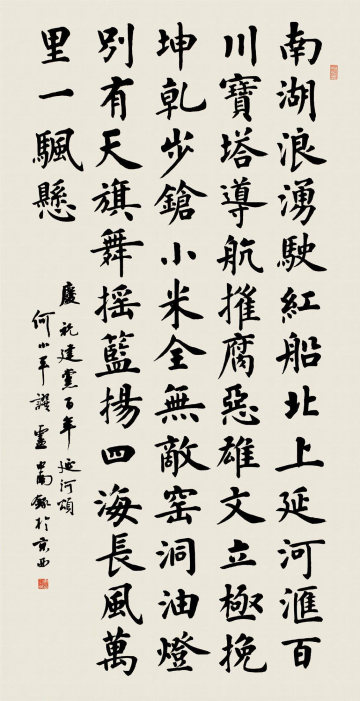 南湖浪湧駛紅船北上延河滙百
川寶塔導航摧腐惡雄文立極挽
坤乾步鎗小米全無敵窑洞油燈
别有天旗舞摇籃揚四海長風萬
里一颿懸
慶祝建黨百年延河頌
何小平譔盧中南錄於京西